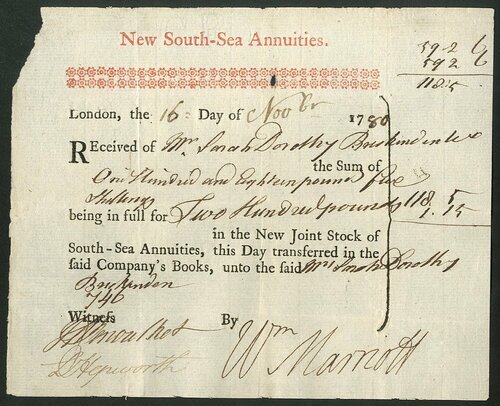 New South-Sea Annuities.
59 - 2 6
59 2 6
118.5
London, the 16 Day of Novbr 1780
Received of Mrs Sarah Dorothy
the Sum of
One Hundred and Eighteen pounds five
Shillings 118 5
being in full for Two Hundred pounds 1.15
in the New Joint Stock of
South-Sea Annuities, this Day transferred in the
said Company's Books, unto the said Mrs Sarah Dorothy
Bruckenden
746
Witness By
Wm Marriott
Hepworth